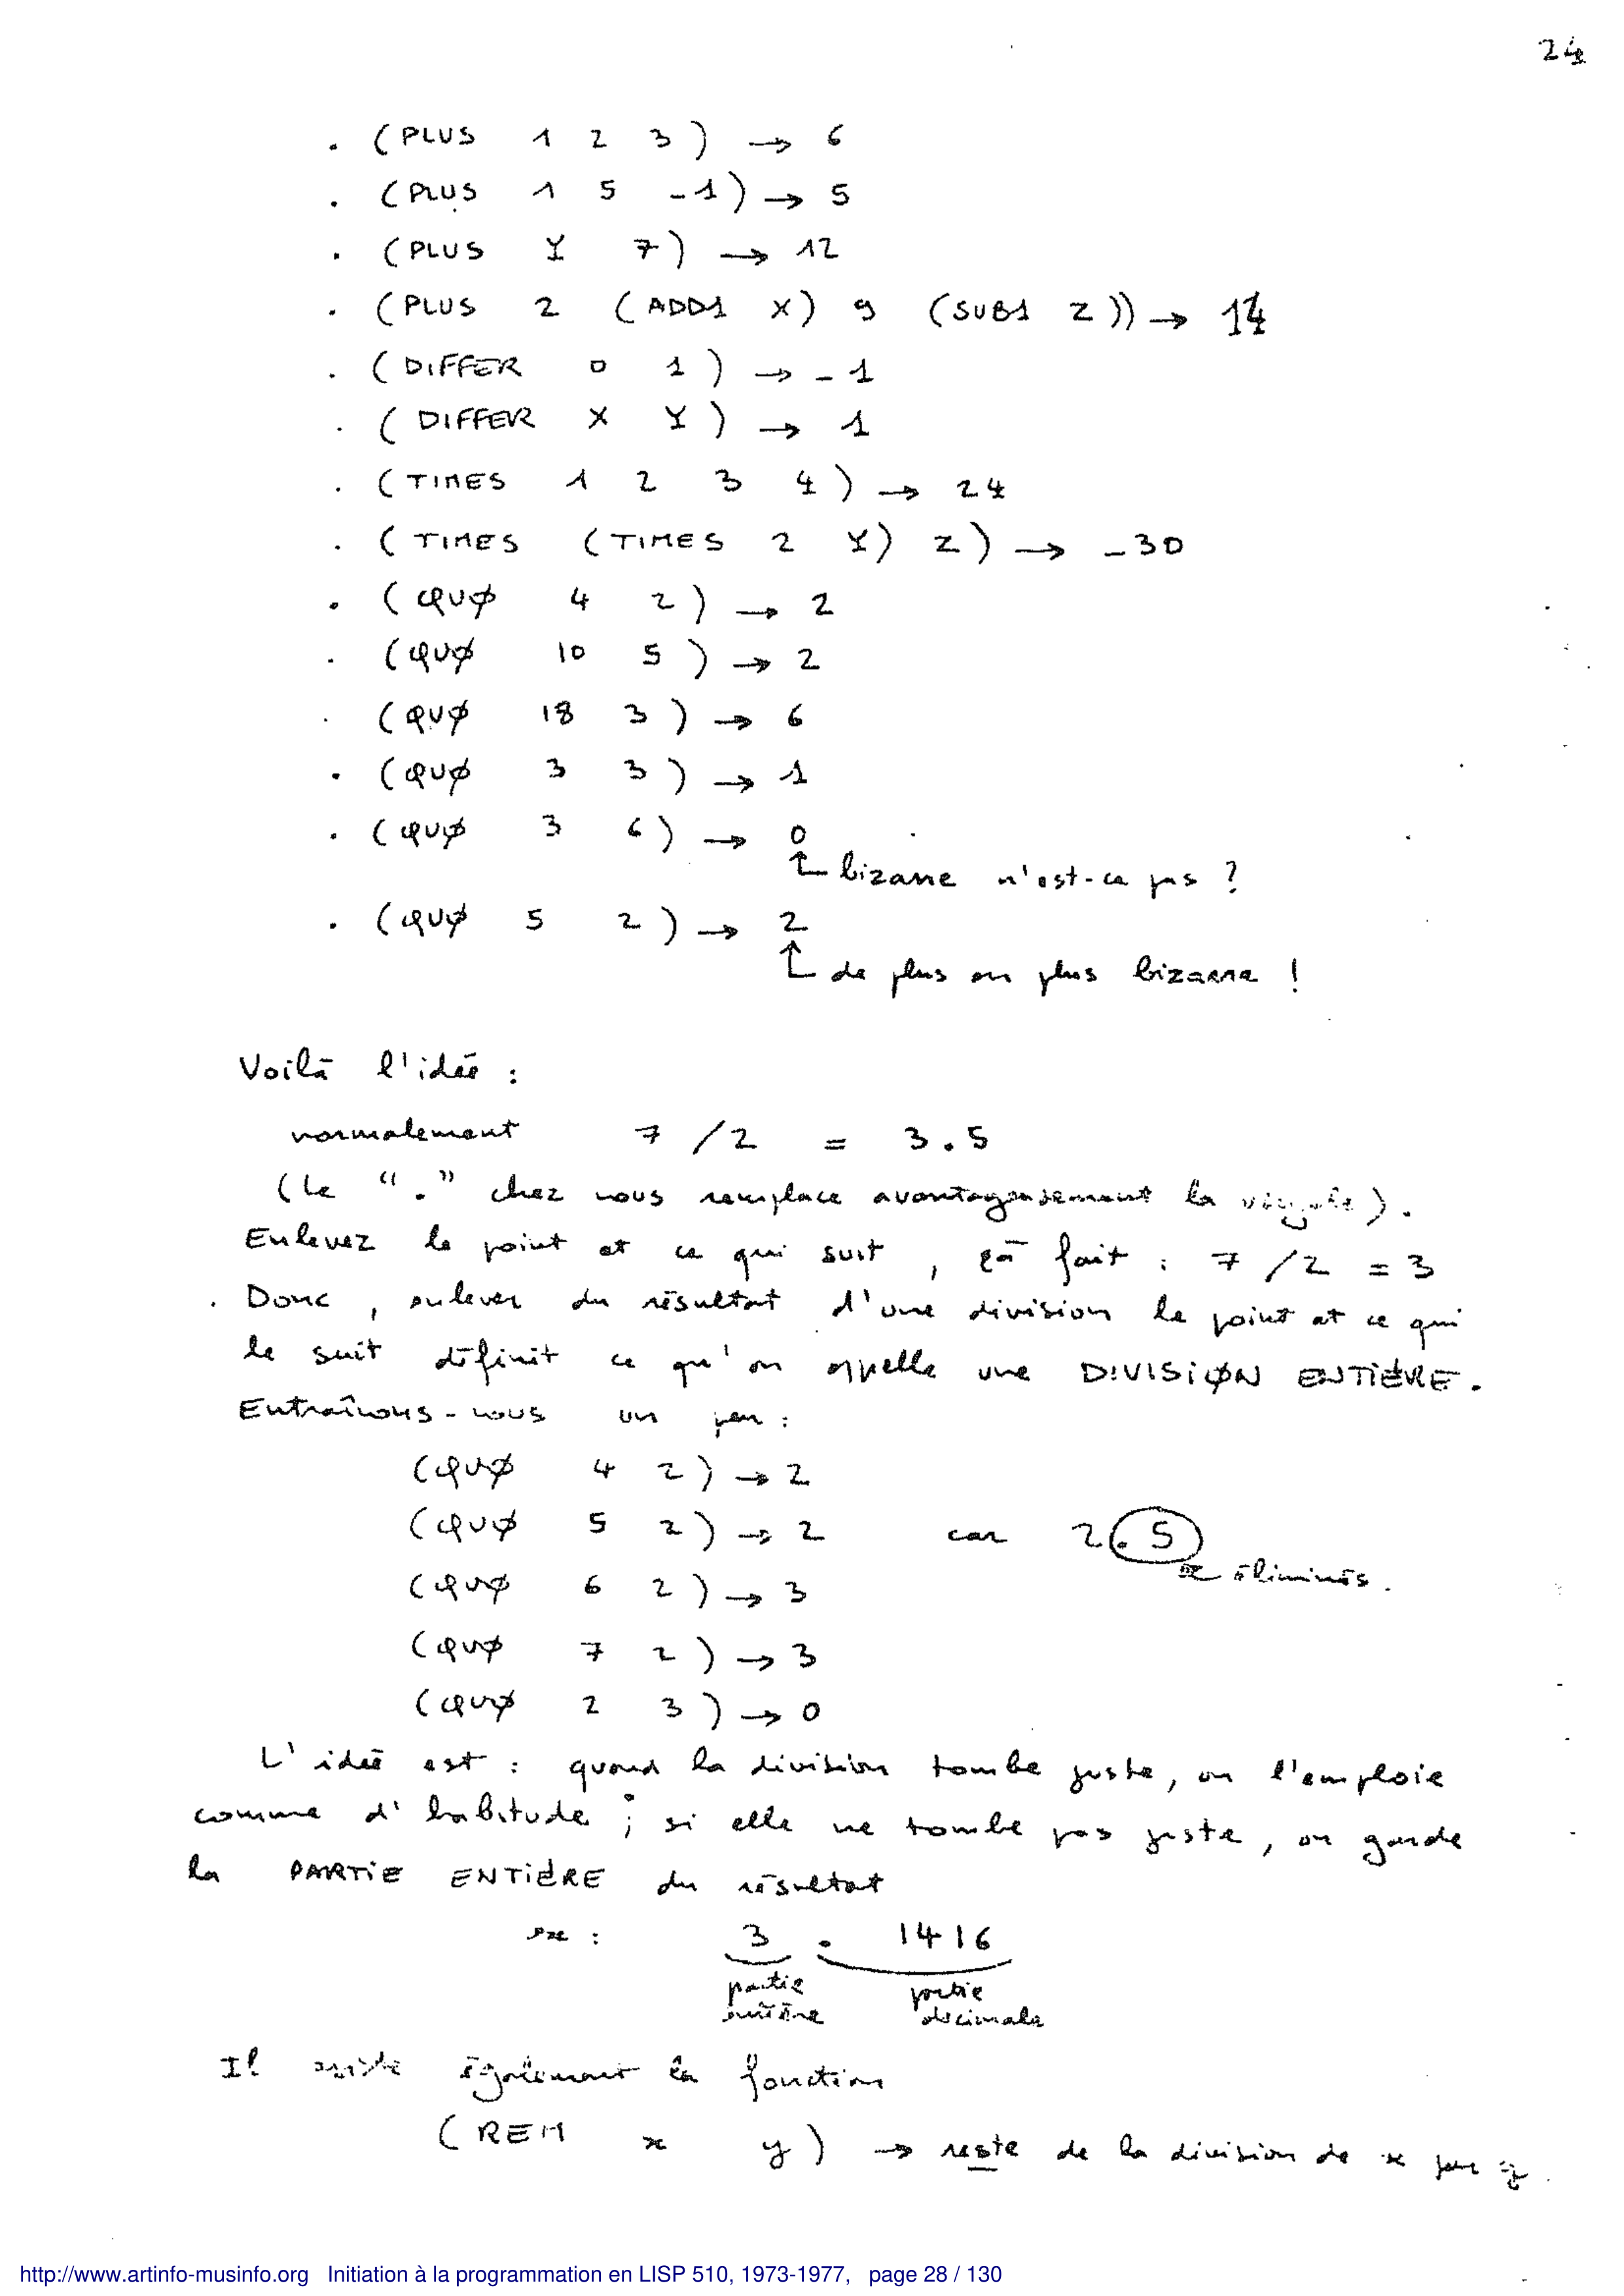 24
. (PLUS 1 2 3) → 6
. (PLUS 1 5 -1) → 5
. (PLUS Y 7) → 12
. (PLUS 2 (ADD1 X) 9 (SUB1 Z)) → 14
. (DIFFER 0 1) → -1
. (DIFFER X Y) → 1
. (TIMES 1 2 3 4) → 24
. (TIMES (TIMES 2 Y) Z) → -30
. (QUØ 4 2) → 2
. (QUØ 10 5) → 2
. (QUØ 18 3) → 6
. (QUØ 3 3) → 1
. (QUØ 3 6) → 0
↑ bizarre n'est-ce pas ?
. (QUØ 5 2) → 2
↑ de plus en plus bizarre !
Voilà l'idée :
normalement 7 / 2 = 3.5
(Le "." chez nous remplace avantageusement la virgule).
Enlevez le point et ce qui suit, çà fait : 7 / 2 = 3
. Donc, enlever du résultat d'une division le point et ce qui
le suit définit ce qu'on appelle une DIVISIØN ENTIÈRE.
Entraînons-nous un peu :
(QUØ 4 2) → 2
(QUØ 5 2) → 2 car 2.5
éliminés.
(QUØ 6 2) → 3
(QUØ 7 2) → 3
(QUØ 2 3) → 0
L'idée est : quand la division tombe juste, on l'emploie
comme d'habitude ; si elle ne tombe pas juste, on garde
la PARTIE ENTIÈRE du résultat
ex : 3 . 1416
partie partie
entière décimale
Il existe également la fonction
(REM x y) → reste de la division de x par y.
http://www.artinfo-musinfo.org Initiation à la programmation en LISP 510, 1973-1977, page 28 / 130